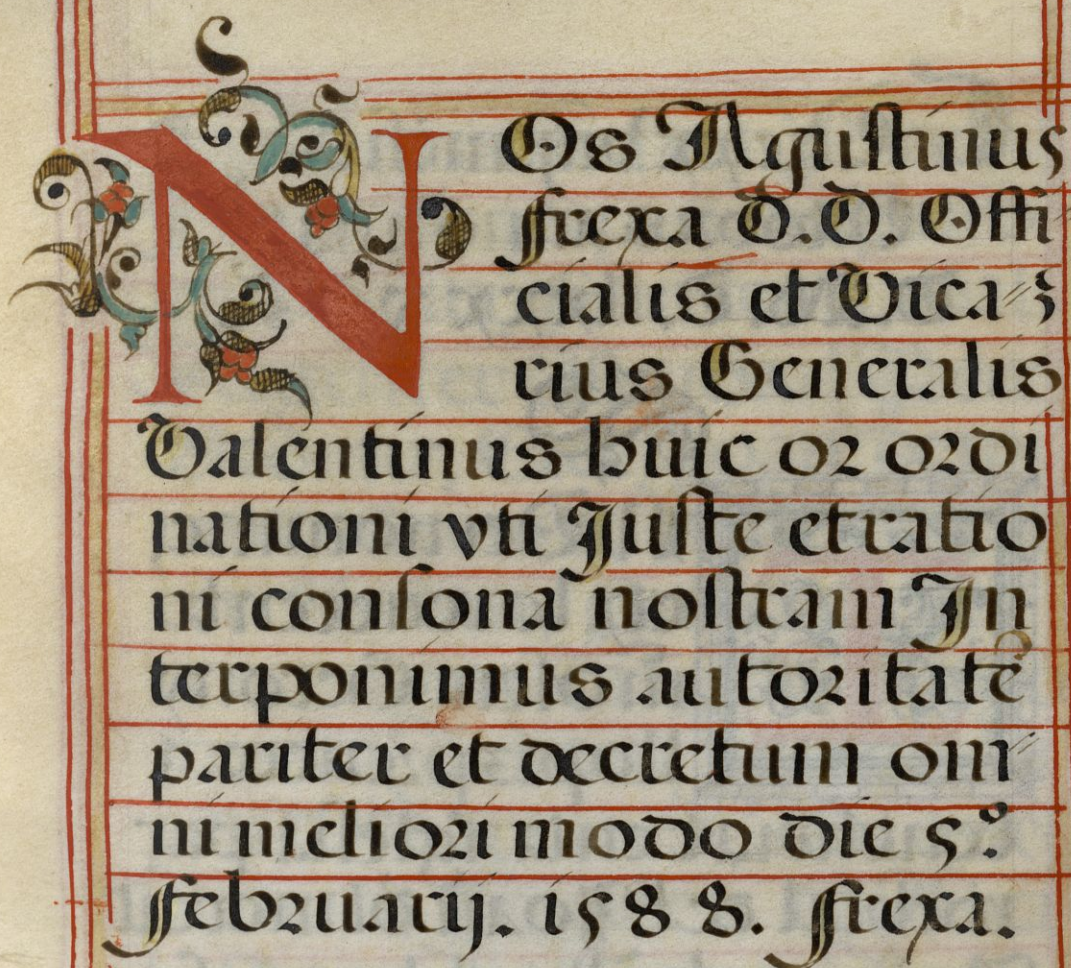 NOs Agustinus
frexa D.D. Offi
cialis et Vica⸗
rius Generalis
Valentinus huic or ordi
nationi vti Juste et ratio
ni consona nostram In
terponimus autoritatē
pariter et decretum om
ni meliori modo die 5.º
februarij. 1588. frexa.